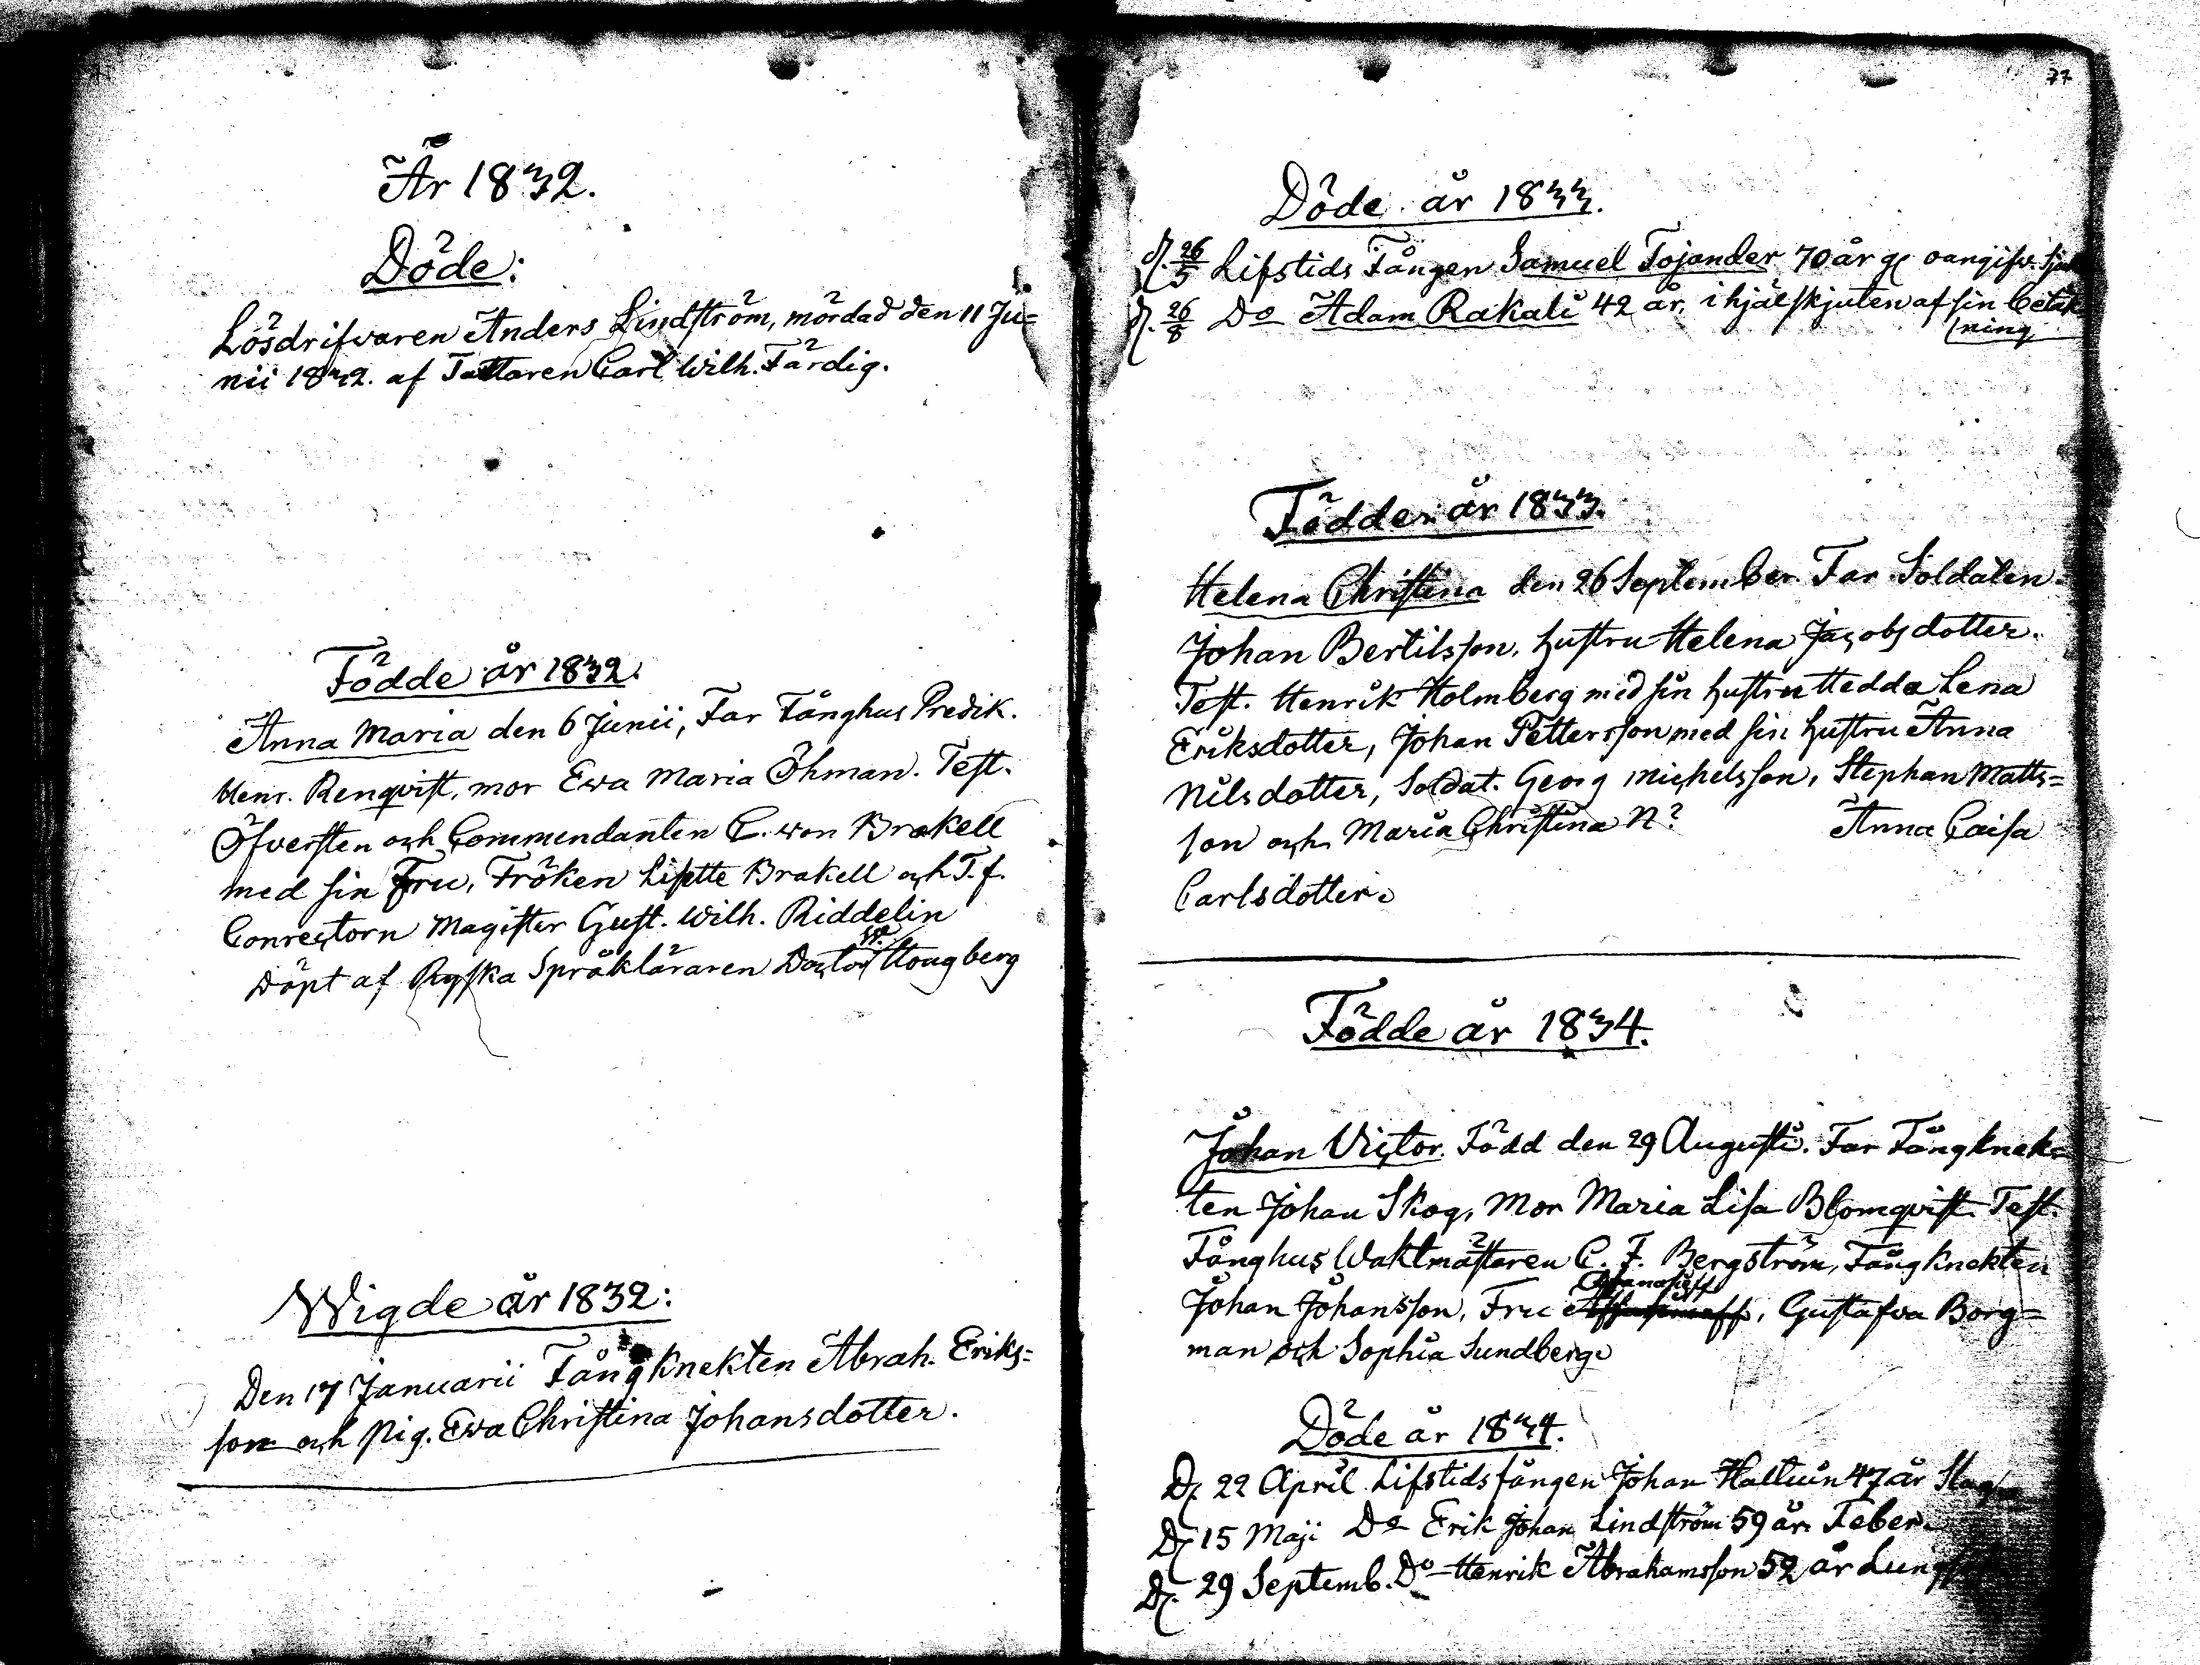 År 1832.
Döde:
Lösdrifvaren Anders Lindström, mördad den 11 Ju=
nii 1832. af Tattaren Carl Wilh. Färdig.
Födde år 1832.
Anna Maria den 6 Junii, Far Fånghus Predik.
Henr. Renqvist, mor Ewa Maria Öhman. Test.
Öfversten och Commendanten C. von Brakell
med sin Fru, Fröken Lisette Brakell och T. f.
Conrectorn Magister Gust. Wilh. Riddelin
Döpt af Ryska Språkläraren Doctor Hougberg
Wigde år 1832:
Den 17 Januarii Fångknekten Abrah. Eriks=
son och Pig. Ewa Christina Johansdotter.
77
Döde år 1833.
d. 26/5 Lifstids Fången Samuel Tojander 70 år oangifv.
d. 26/8 Do Adam Rakali 42 år, ihjälskjuten af sin betäk
ning
Födde år 1833.
Helena Christina den 26 September. Far Soldaten
Johan Bertilsson, hustru Helena Jacobsdotter.
Test. Henrik Holmberg med sin hustru Hedda Lena
Eriksdotter, Johan Pettersson med sin hustru Anna
Nilsdotter, Soldat. Georg Michelsson, Stephan Matts=
son och Maria Christina N? Anna Caisa
Carlsdotter.
Födde år 1834.
Johan Victor. Född den 29 Augusti. Far Fångknek=
ten Johan Skog, Mor Maria Lisa Blomqvist. Test.
Fånghus Waktmästaren C. F. Bergström, Fångknekten
Afanasieff
Johan Johansson, Fru, Gustafva Borg=
man och Sophia Sundberg.
Döde år 1834.
D. 22 April Lifstidsfången Johan Haltuin 47 år Slag
D. 15 Maji Do Erik Johan Lindström 59 år Feber.
D. 29 Septemb. Do Henrik Abrahamsson 52 år